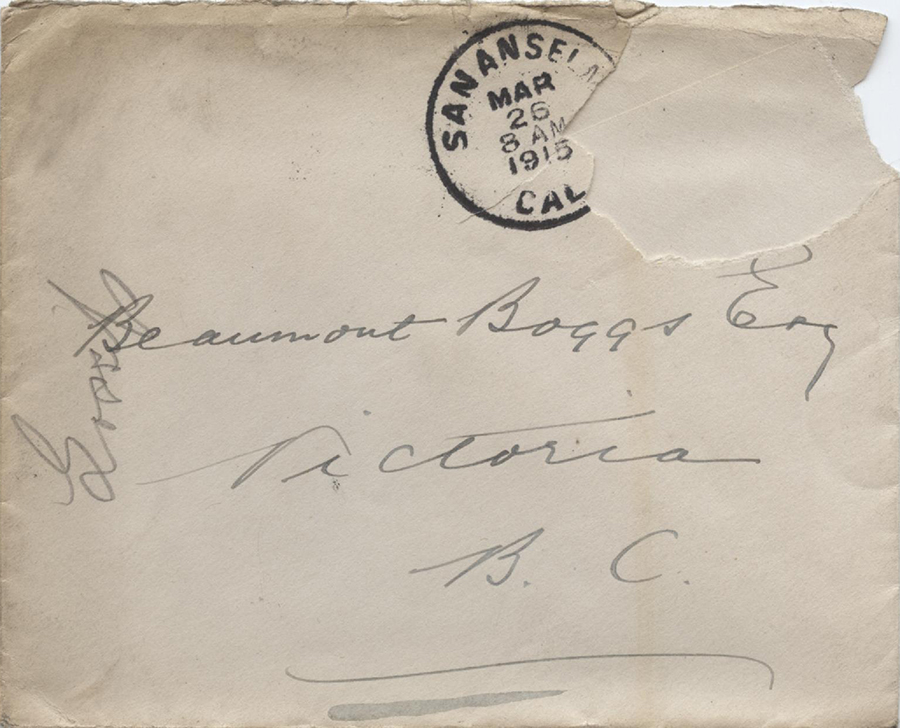 SAN ANSELM
MAR
26
8 AM
1915
CAL
Beaumont Boggs Esq
Victoria
B. C.